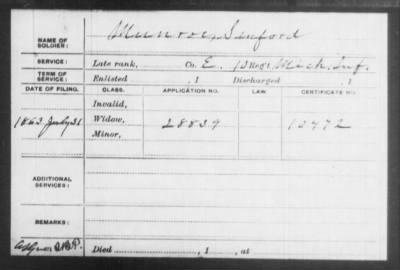 NAME OF SOLDIER: Munroe, Sanford
SERVICE: Late rank, Co. E, 13 Reg't Mich. Inf.
TERM OF SERVICE: Enlisted , 1 Discharged , 1
DATE OF FILING. CLASS. APPLICATION NO. LAW CERTIFICATE NO.
Invalid,
1863 July 31 Widow, 28839 12972
Minor,
ADDITIONAL SERVICES:
REMARKS:
Died , 1 , at